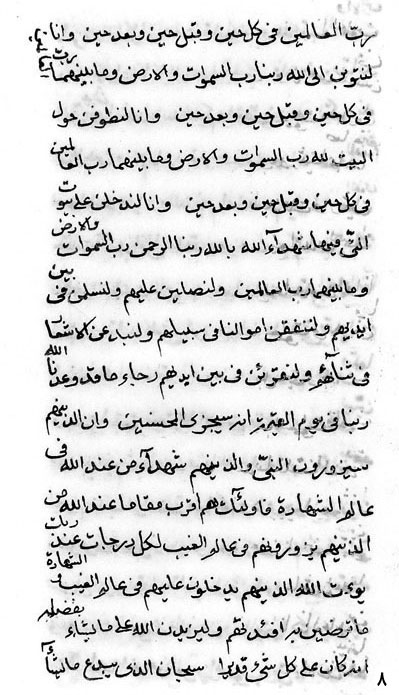 ربّ العالمين فى كل حين و قبل حين و بعد حين و انا
لنتوبن الى الله ربنا رب السموات و الارض و ما بينهما رب العالمين
فى كل حين و قبل حين و بعد حين و انا لنطوفن حول
البيت لله رب السموات و الارض و ما بينهما رب العالمين
فى كل حين و قبل حين و بعد حين و انا لندخلن على بيوت
فيها شهدآء الله بالله ربنا الرحمن رب السموات و الارض
و ما بينهما رب العالمين و لنصلين عليهم و لنسلمن فى بين
ايديهم و لننفقن اموالنا فى سبيلهم و
فى ثنآئهم و فى بين ايديهم رجاء ما قد وعدنا الله
ربنا فى يوم القيمة انه سيجزى المحسنين و ان الذينهم
سيزورون النبىّ و الذينهم شهدآء من عند الله فى
عالم الشهادة فاولئك هم اقرب مقاما عند الله من
الذينهم يزورونهم فى عالم الغيب لكل درجات عند ربك
يؤت الله الذينهم يدخلون عليهم فى عالم الغيب و الشهادة
ما ترضين به افئدتهم و ليزيدن الله على ما يشاء بفضله
انه كان على كل شىء قديرا سبحان الذى يبدع ما يشآء
٨